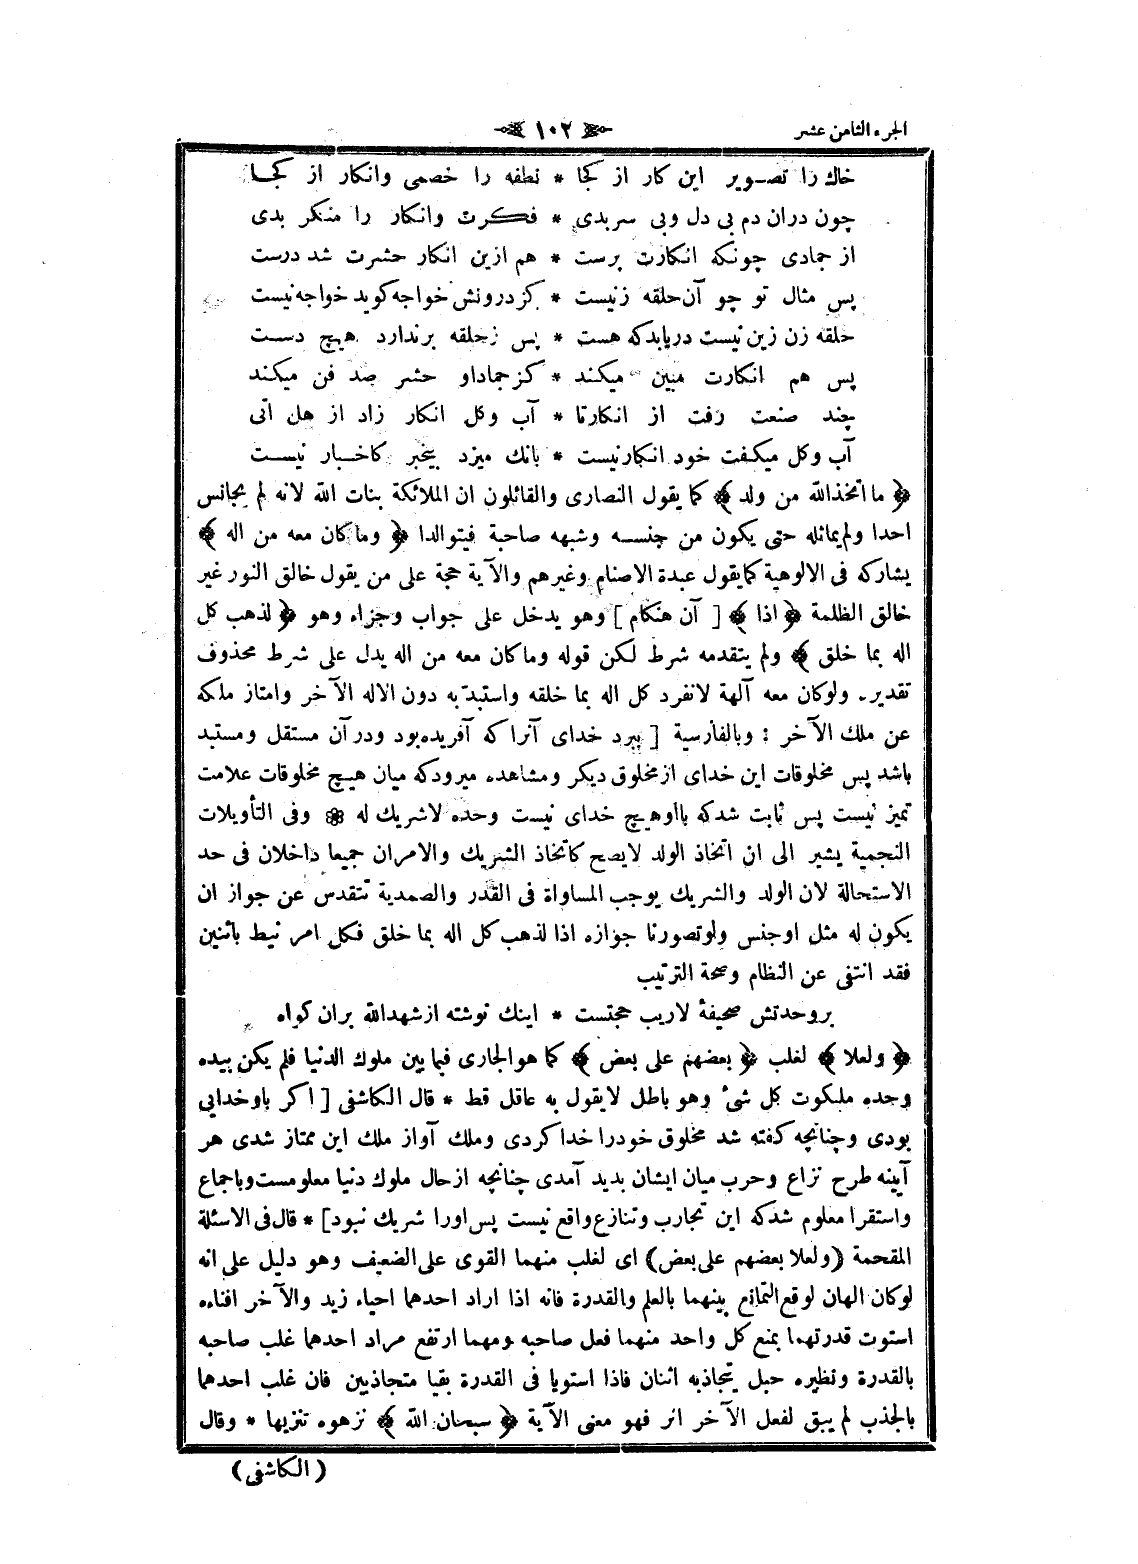 الجزء الثامن عشر
١٠٢
خاك را تصوير اين كار از كجا * نطفه را خصمى وانكار از كجا
چون دران دم بى دل وبى سربدى * فكرت وانكار را منكر بدى
از جمادى چونكه انكارت برست * هم ازين انكار حشرت شد درست
پس مثال تو چو آن حلقه زنيست * كزدرونش خواجه كويد خواجه نيست
حلقه زن زين نيست دريابدكه هست * پس زحلقه برندارد هيچ دست
پس هم انكارت مبين ميكند * كزجماداو حشر صد فن ميكند
چند صنعت رفت از انكارتا * آب وكل انكار زاد از هل اتى
آب وكل ميكفت خود انكارنيست * بانك ميزد بيخبر كاخبار نيست
﴿ ما اتخذالله من ولد ﴾ كما يقول النصارى والقائلون ان الملائكة بنات الله لانه لم يجانس
احدا ولم يماثله حتى يكون من جنسه وشبهه صاحبة فيتوالدا ﴿ وماكان معه من اله ﴾
يشاركه فى الالوهية كمايقول عبدة الاصنام وغيرهم والآية حجة على من يقول خالق النور غير
خالق الظلمة ﴿ اذا ﴾ [ آن هنكام ] وهو يدخل على جواب وجزاء وهو ﴿ لذهب كل
اله بما خلق ﴾ ولم يتقدمه شرط لكن قوله وماكان معه من اله يدل على شرط محذوف
تقديره ولوكان معه آلهة لانفرد كل اله بما خلقه واستبدبه دون الاله الآخر وامتاز ملكه
عن ملك الآخر : وبالفارسية [ ببرد خداى آنرا كه آفريده بود ودر آن مستقل ومستبد
باشد پس مخلوقات اين خداى ازمخلوق ديكر ومشاهده ميرودكه ميان هيچ مخلوقات علامت
تميز نيست پس ثابت شدكه بااوهيچ خداى نيست وحده لاشريك له ❁ وفى التأويلات
النجمية يشير الى ان اتخاذ الولد لايصح كاتخاذ الشريك والامران جميعا داخلان فى حد
الاستحالة لان الولد والشريك يوجب المساواة فى القدر والصمدية تتقدس عن جواز ان
يكون له مثل اوجنس ولوتصورنا جوازه اذا لذهب كل اله بما خلق فكل امر نيط باثنين
فقد انتفى عن النظام وصحة الترتيب
بروحدتش صحيفۀ لاريب حجتست * اينك نوشته ازشهدالله بران كواه
﴿ ولعلا ﴾ لغلب ﴿ بعضهم على بعض ﴾ كما هوالجارى فيما بين ملوك الدنيا فلم يكن بيده
وحده ملكوت كل شئ وهو باطل لايقول به عاقل قط * قال الكاشفى [ اكر باوخدايى
بودى وچنانچه كفته شد مخلوق خودرا جداكردى وملك آواز ملك اين ممتاز شدى هر
آينه طرح نزاع وحرب ميان ايشان بديد آمدى چنانچه ازحال ملوك دنيا معلومست وباجماع
واستقرا معلوم شدكه اين تجارب وتنازع واقع نيست پس اورا شريك نبود] * قال فى الاسئلة
المقحمة (ولعلا بعضهم على بعض) اى لغلب منهما القوى على الضعيف وهو دليل على انه
لوكان الهان لوقع التمانع بينهما بالعلم والقدرة فانه اذا اراد احدهما احياء زيد والآخر افناءه
استوت قدرتهما بمنع كل واحد منهما فعل صاحبه ومهما ارتفع مراد احدهما غلب صاحبه
بالقدرة ونظيره حبل يتجاذبه اثنان فاذا استويا فى القدرة بقيا متجاذبين فان غلب احدهما
بالجذب لم يبق لفعل الآخر اثر فهو معنى الآية ﴿ سبحان الله ﴾ نزهوه تنزيها * وقال
(الكاشفى)